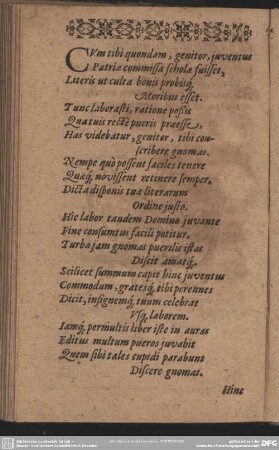 CUm tibi quondam, genitor, juventus
Patriæ commissa scholæ fuisset,
Literis ut culta bonis probisq́;
Moribus esset.
Tunc laborasti, ratione possis
Qua tuis rectè pueris præesse,
Has videbatur, genitor, tibi con-
scribere gnomas.
Nempe quò possent faciles tenere
Quæq́; novissent retinere semper,
Dicta disponis tua literarum
Ordine justo.
Hic labor tandem Domino juvante
Fine consumtus facili potitur,
Turba jam gnomas puerilis istas
Discit amatq́;.
Scilicet summum capit hinc juventus
Commodum, gratesq́; tibi perennes
Dicit, insignemq́; tuum celebrat
Usq́; laborem.
Iamq́; permultis liber iste in auras
Editus multum pueros juvabit
Quem sibi tales cupidi parabunt
Discere gnomas.
Hinc